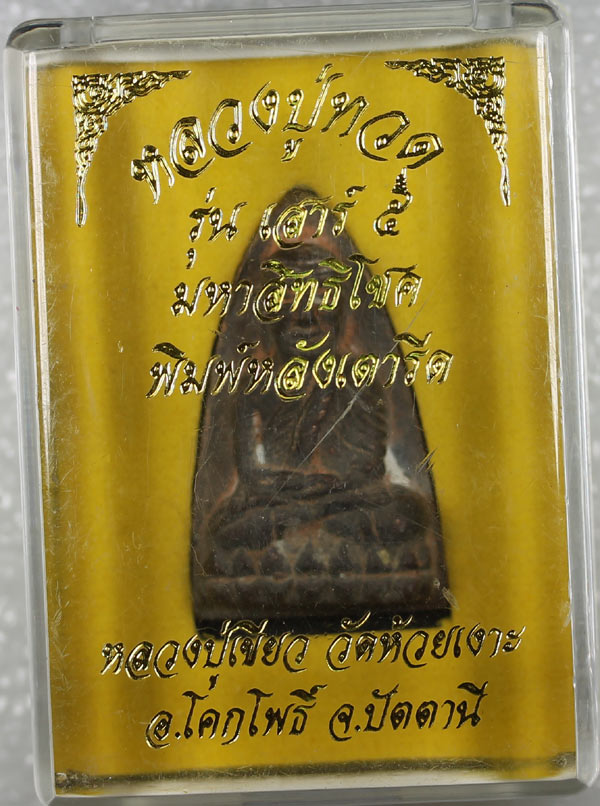 หลวงปู่ทวด
รุ่น เสาร์ ๕
มหาสิทธิโชค
พิมพ์หลังเตารีด
หลวงปู่เขียว วัดห้วยเงาะ
อ.โคกโพธิ์ จ.ปัตตานี